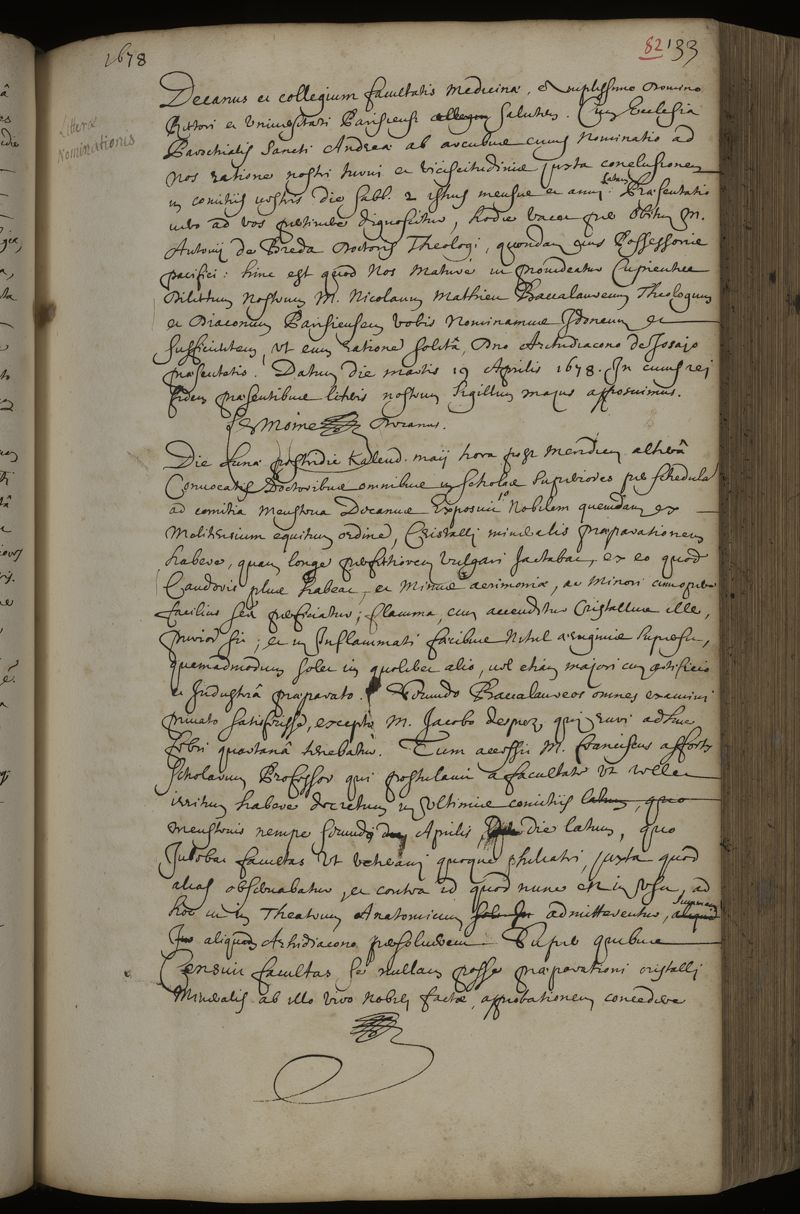 1678
82 133
Litteræ
Nominationis
Decanus et collegium facultatis medicinæ, Amplissimo Domino
Rectori et Universitati Parisiensi salutem. Cum Ecclesia
Parochialis Sancti Andreæ ab arcubus cuius Nominatio ad
Nos ratione nostri turni et vicissitudinis juxta conclusionem
in comitiis vestris die Sabb. 2 istius mensis et anni latam Præsentatio
vero ad vos pertinere dignoscitur, hodie vacet per obitum M.
Antonij de Breda Doctoris Theologi, quondam eius Possessoris
pacifici: hinc est quod Nos mature in provideatur Cupientes
Dilectum nostrum M. Nicolaum Mathieu Baccalaureum Theologum
et Diaconum Parisiensem vobis Nominamus Idoneum et
sufficientem, ut eum ratione solitâ, Dno Archidiacono de Josajo
præsentetis. Datum die martis 19 Aprilis 1678. In cuius rej
fidem præsentibus litteris nostrum sigillum majus apposuimus.
Le Moine Decanus.
Die Lunæ postridie Kalend. maij hora post meridiem alterâ
Convocatis Doctoribus omnibus in scholas superiores per schedulam
ad comitia menstrua Decanus Exposuit 1o Nobilem quemdam ex
Melitensium equitum ordine, Cristalli mineralis præparationem
habere, quam longe perfectiorem vulgari Jactabat, ex eo quod
Candoris plus habeat, et minus acrimoniæ, ac minori
facilius perficiatur; flamma, cum accenditur Cristallus ille,
purior sit; et in Inflammati facibus Nihil æruginis supersit,
quemadmodum solet in quolibet alio, vel etiam majori cum artificio
et Industriâ præparato. Secundo Baccalaureos omnes examini
privato satisfecisse, excepto M. Jacobo desprez, qui ruri adhuc
febri quartanâ tenebatur. Tum accessit M. franciscus afforty
Scholarum Professor qui postulavit a facultate ut vellet
irritum habere decretum in ultimis comitiis latum, quo
menstruis nempe secundo Aprilis, die latum, quo
Jubebat facultas ut veterani quoque philiatri, juxta quod
alias observabatur, et contra id quod nunc est in usu, ad
hoc ut in Theatrum Anatomicum admitterentur,
aliquam Archidiacono persolverent. Super quibus
Censuit facultas se nullam posse præparationi cristalli
Mineralis ab illo viro nobili factæ, approbationem concedere